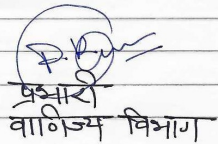 प्रभारी
वाणिज्य विभाग